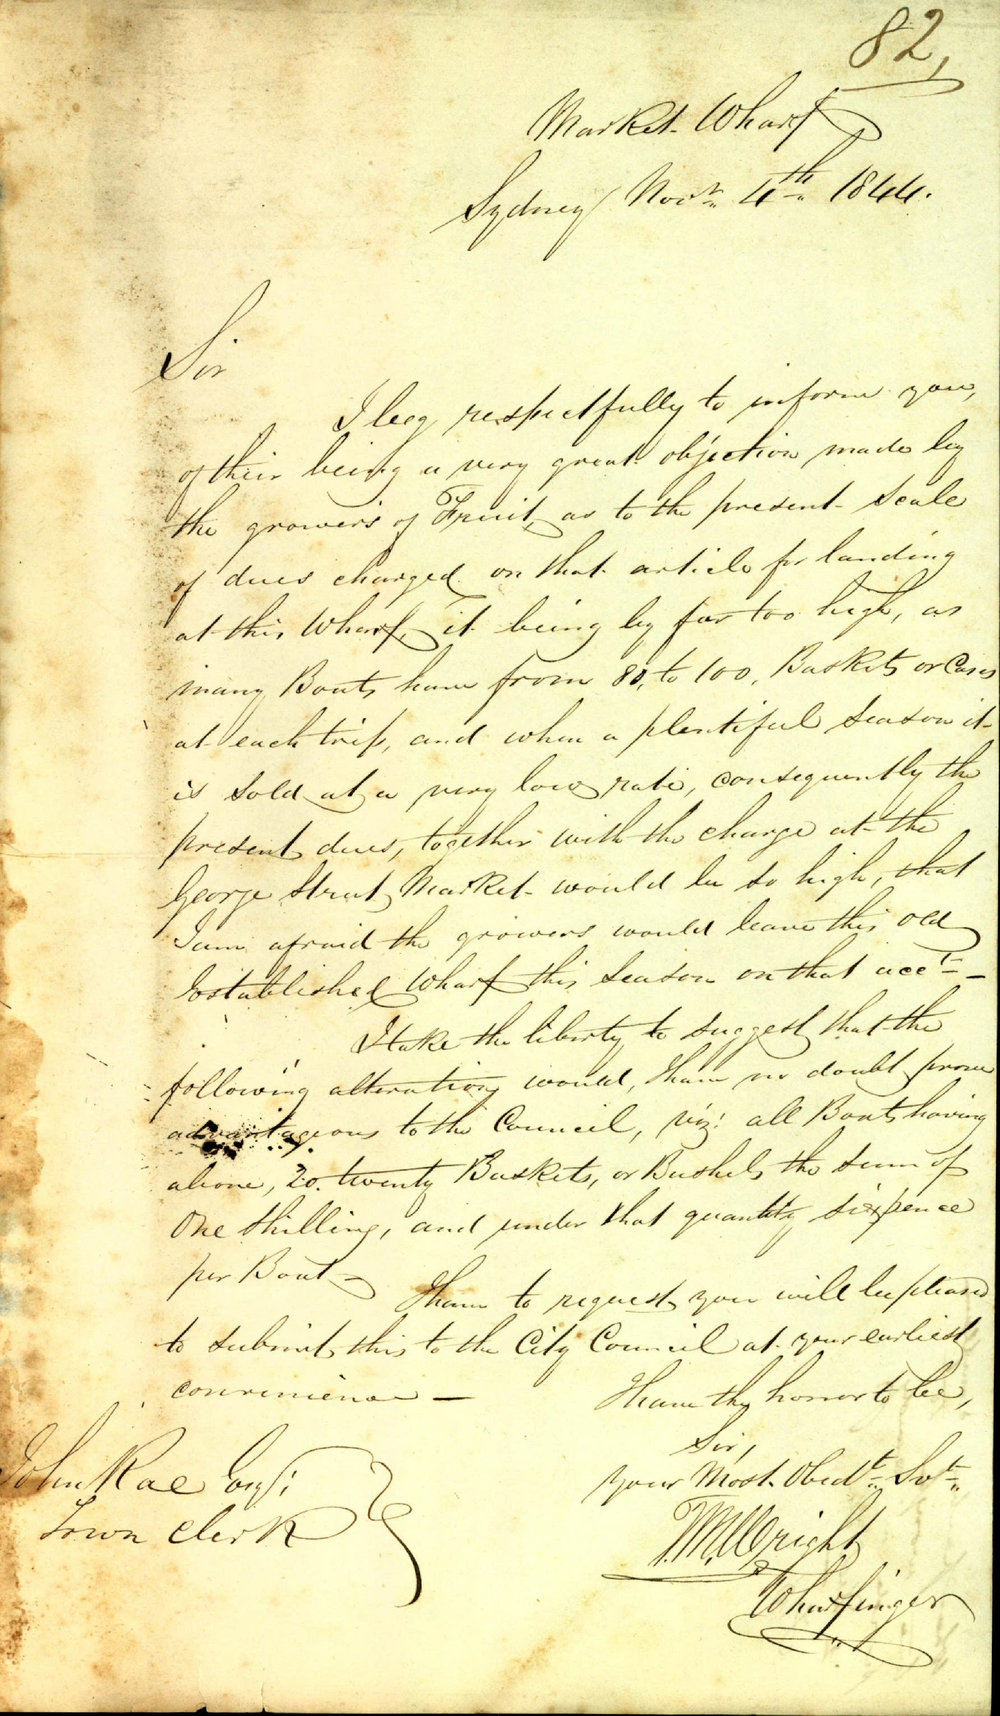 82,
Market Wharf
Sydney Novr. 4th 1844.
Sir
I beg respectfully to inform you,
of their being a very great objection made by
the growers of Fruit, as to the present Scale
of dues charged on that article for landing
at this Wharf, it being by far too high, as
many Boats have from 80, to 100, Baskets or Cases
at each trip, and when a plentiful Season it
is Sold at a very low rate, consequently the
present dues, together with the charge at the
George Street Market would be so high, that
I am afraid the growers would leave this old
Established Wharf this Season on that acct. —
I take the liberty to suggest that the
following alterations would, I have no doubt prove
advantageous to the Council, viz: all Boats having
above, 20. twenty Baskets, or Bushels the Sum of
One Shilling, and under that quantity sixpence
per Boat —
I have to request you will be pleased
to submit this to the City Council at your earliest
convenience —
I have the honor to be,
Sir,
Your Most Obedt. Svt.
T. M. Wright
Wharfinger
John Rae Esqr:
Town Clerk